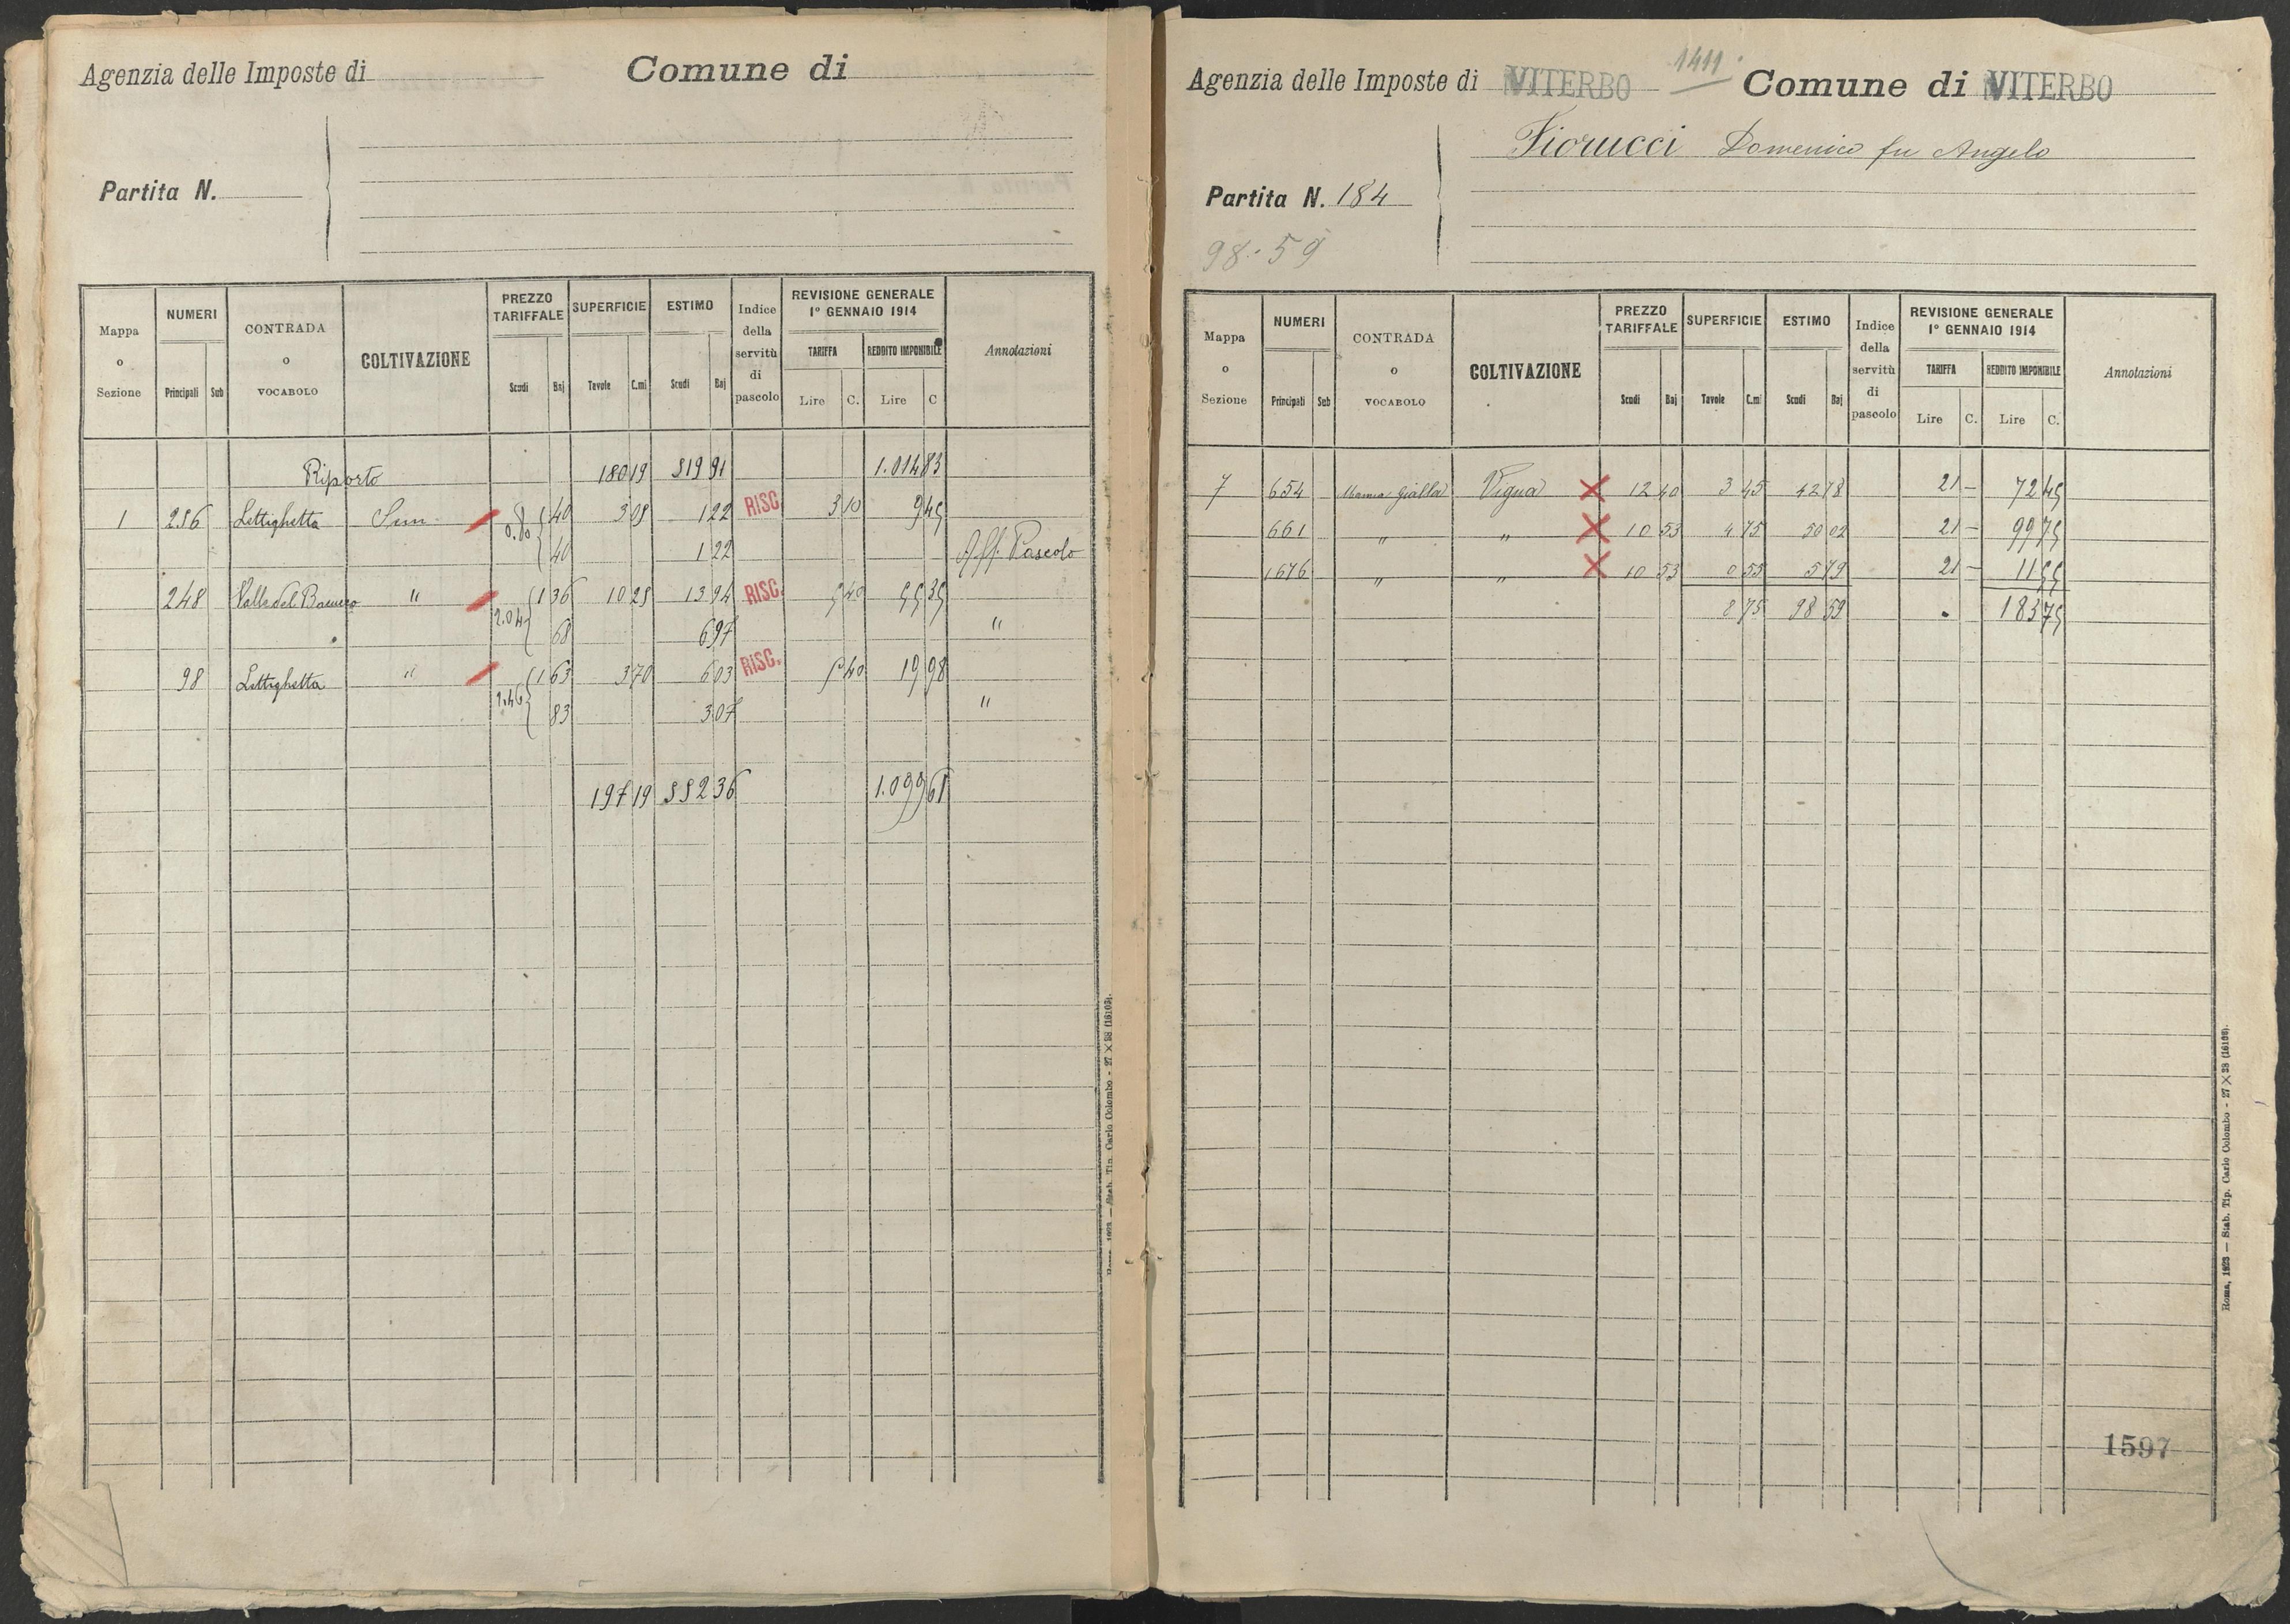 Agenzia delle Imposte di
Comune di
Partita N.
Mappa o Sezione
NUMERI
Principali Sub
CONTRADA o VOCABOLO
COLTIVAZIONE
PREZZO TARIFFALE
Scudi Baj
SUPERFICIE
Tavole C.mi
ESTIMO
Scudi Baj
Indice della servitù di pascolo
REVISIONE GENERALE
1º GENNAIO 1914
TARIFFA REDDITO IMPONIBILE
Lire C. Lire C
Annotazioni
Riporto 180 19 519 91 1.014 83
1 256 Lettighetta Sem. 0.80 40 3 05 1 22 RISC 3 10 9 45
40 1 22 Aff. Pascolo
248 Valle del " 2.04 1 36 10 25 13 94 RISC. 5 40 55 35
68 6 97 "
98 Lettighetta " 2.46 1 63 3 70 6 03 RISC. 5 40 19 98
83 3 07 "
197 19 552 36 1.099 61
Roma, 1923 — Stab. Tip. Carlo Colombo - 27 × 38 (16103).
Agenzia delle Imposte di VITERBO 1411 Comune di VITERBO
Fiorucci Domenico fu Angelo
Partita N. 184
98.59
Mappa o Sezione
NUMERI
Principali Sub
CONTRADA o VOCABOLO
COLTIVAZIONE
PREZZO TARIFFALE
Scudi Baj
SUPERFICIE
Tavole C.mi
ESTIMO
Scudi Baj
Indice della servitù di pascolo
REVISIONE GENERALE
1º GENNAIO 1914
TARIFFA REDDITO IMPONIBILE
Lire C. Lire C.
Annotazioni
7 654 Mamma Gialla Vigna X 12 40 3 45 42 78 21 – 72 45
661 " " X 10 53 4 75 50 02 21 – 99 75
1676 " " X 10 53 0 55 5 79 21 – 11 55
8 75 98 59 183 75
1597
Roma, 1923 — Stab. Tip. Carlo Colombo - 27 × 38 (16103).